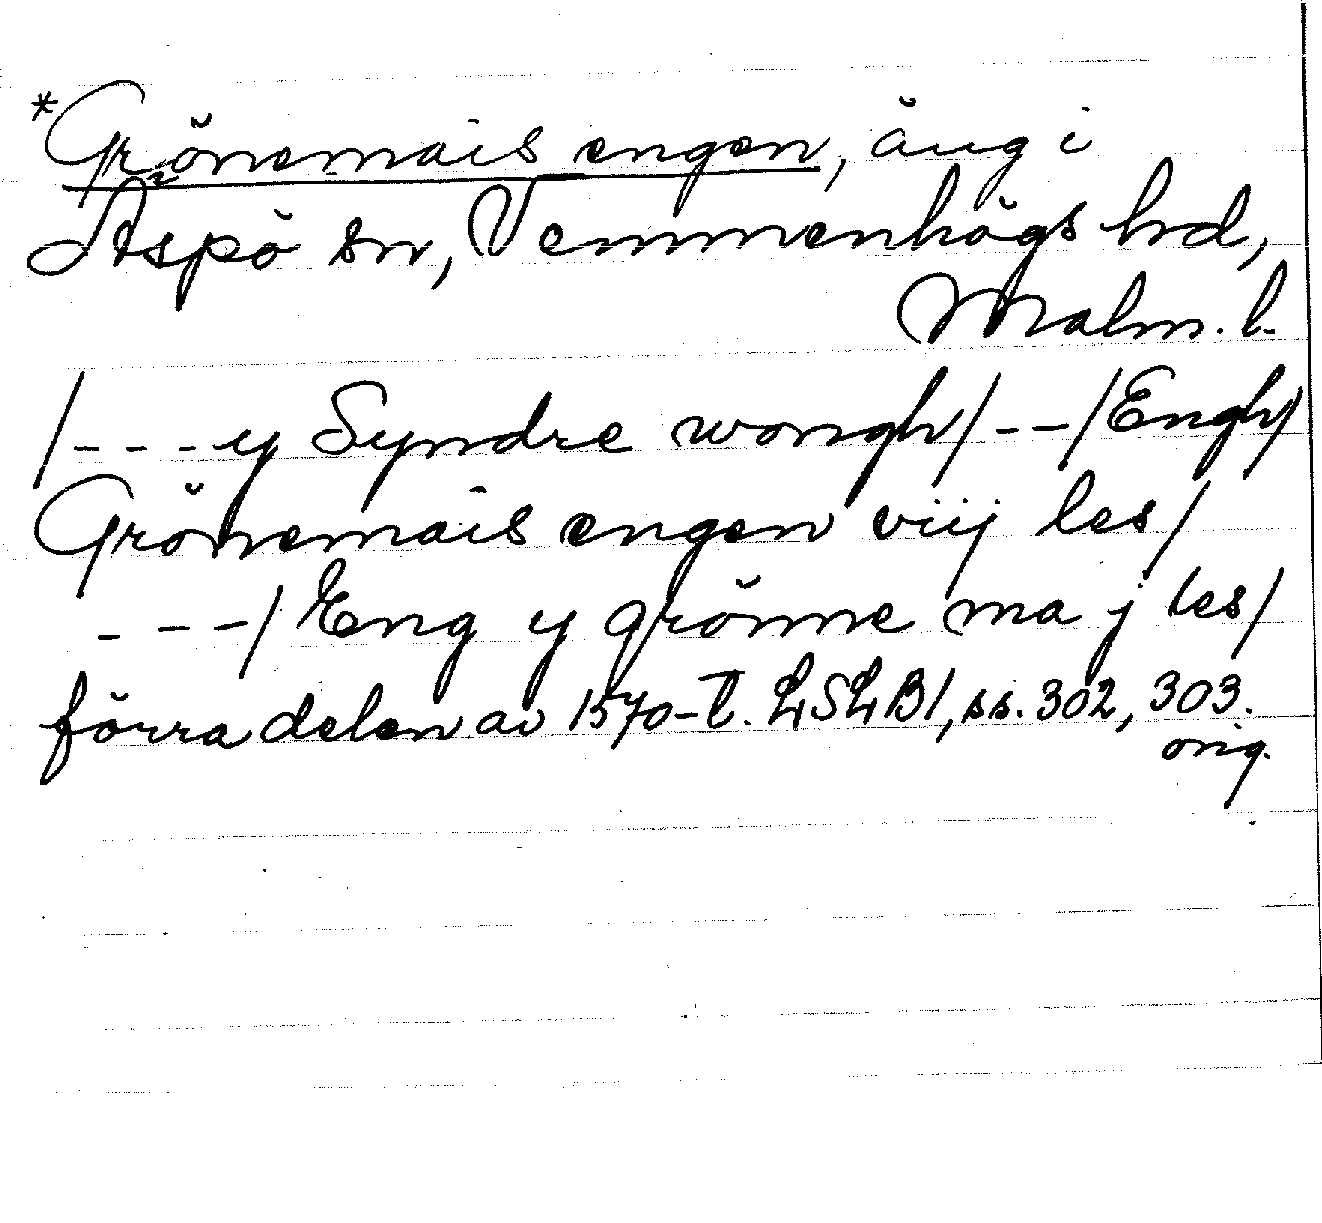 *Grönemais engen, äng i
Äspö sn, Vemmenhögs hd,
Malm. l.
/- - - y Syndre wongh/ - - /Engh/
Grönemais engen viij les/
- - -/ Eng y grönne ma j les/
förra delen av 1570-t. LSLB1, ss. 302, 303.
orig.